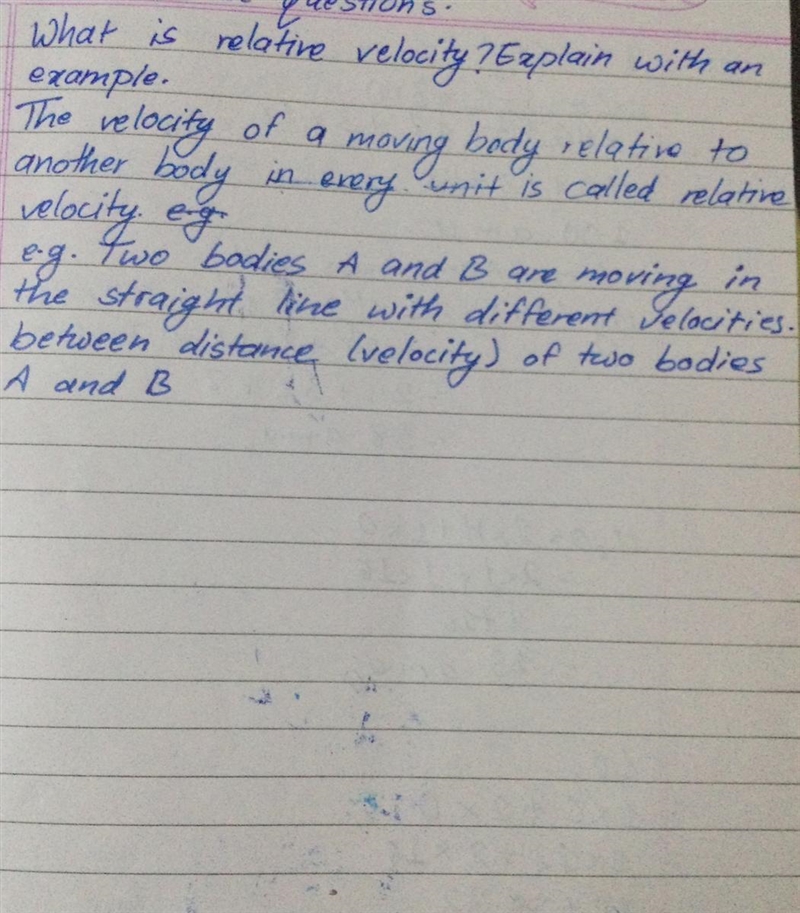 questions.
What is relative velocity? Explain with an
example.
The velocity of a moving body relative to
another body in every unit is called relative
velocity. e.g.
e.g. Two bodies A and B are moving in
the straight line with different velocities.
between distance (velocity) of two bodies
A and B